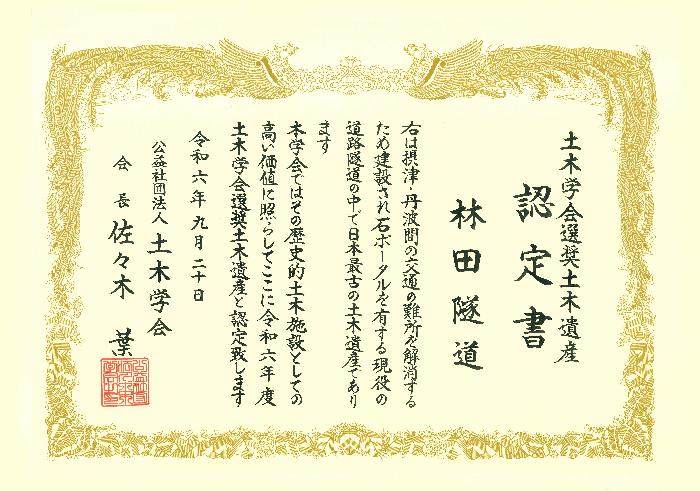 土木学会選奨土木遺産
認定書
林田隧道
右は摂津・丹波間の交通の難所を解消する
ため建設され石ポータルを有する現役の
道路隧道の中で日本最古の土木遺産であり
ます
本学会ではその歴史的土木施設としての
高い価値に照らしてここに令和六年度
土木学会選奨土木遺産と認定致します
令和六年九月二十日
公益社団法人 土木学会
会長 佐々木 葉